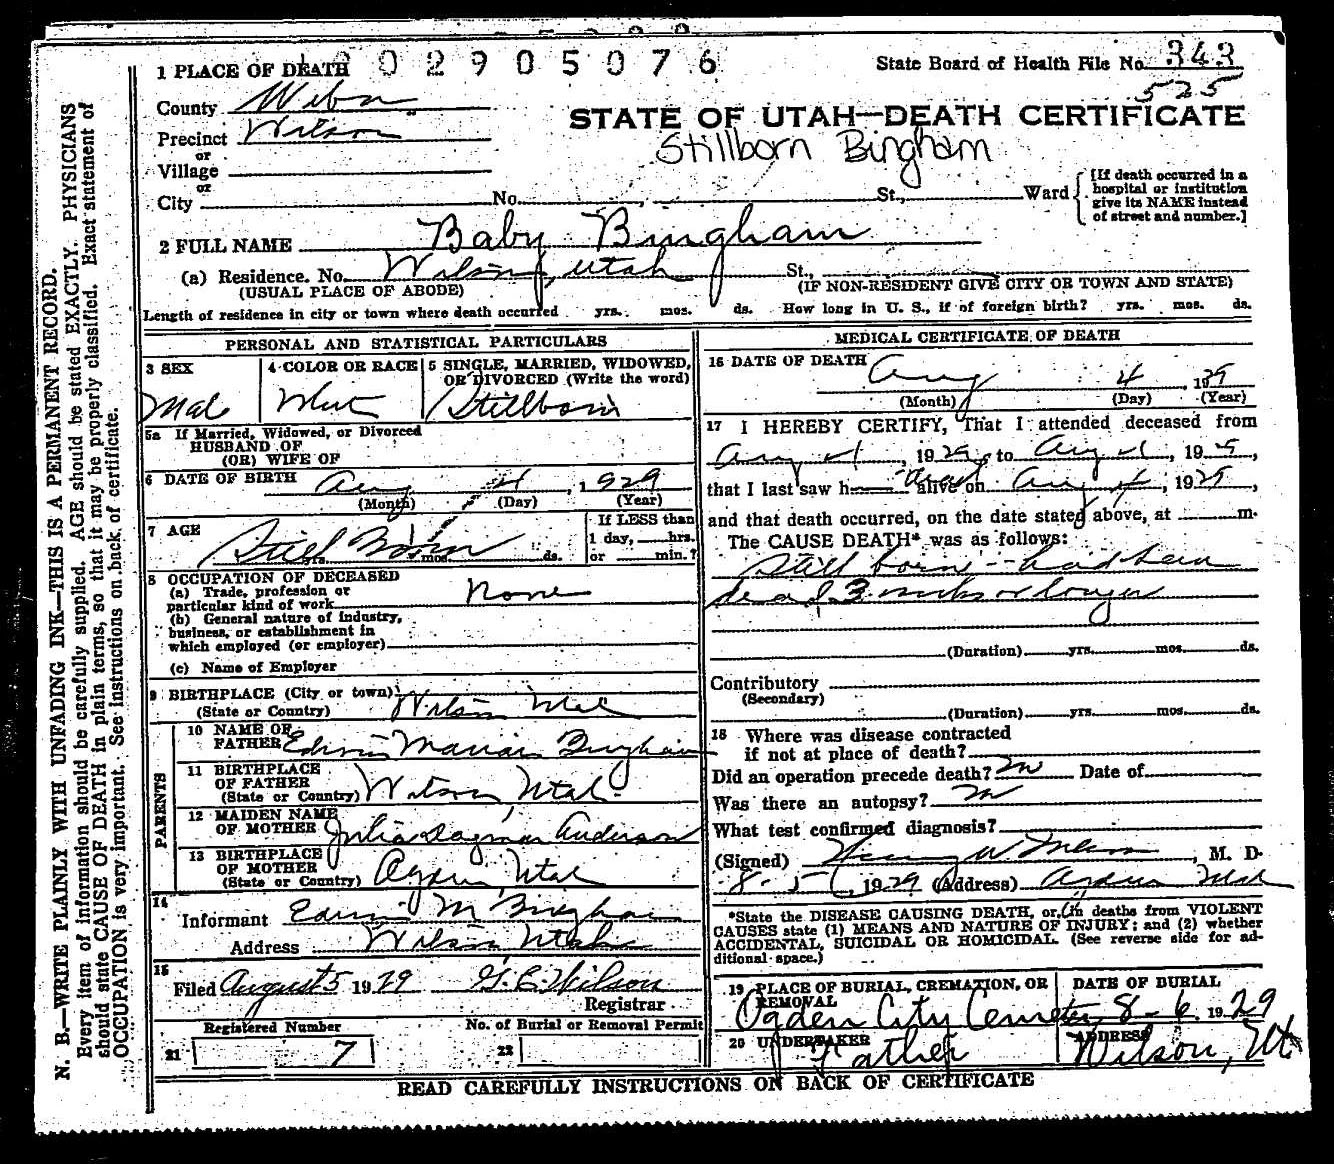 2 9 0 5 0 7 6
1 PLACE OF DEATH
State Board of Health File No. 343
525
County Weber
STATE OF UTAH—DEATH CERTIFICATE
Precinct Wilson
Stillborn Bingham
or
Village
or
City No. St., Ward
[If death occurred in a hospital or institution give its NAME instead of street and number.]
2 FULL NAME Baby Bingham
(a) Residence. No. Wilson, Utah St.,
(USUAL PLACE OF ABODE) (IF NON-RESIDENT GIVE CITY OR TOWN AND STATE)
Length of residence in city or town where death occurred yrs. mos. ds. How long in U. S., if of foreign birth? yrs. mos. ds.
PERSONAL AND STATISTICAL PARTICULARS
3 SEX Male
4 COLOR OR RACE White
5 SINGLE, MARRIED, WIDOWED, OR DIVORCED (Write the word) Stillborn
5a If Married, Widowed, or Divorced
HUSBAND OF
(OR) WIFE OF
6 DATE OF BIRTH Aug 4, 1929
(Month) (Day) (Year)
7 AGE Still Born yrs. mos. ds.
If LESS than
1 day, hrs.
or min.?
8 OCCUPATION OF DECEASED
(a) Trade, profession or
particular kind of work None
(b) General nature of industry,
business, or establishment in
which employed (or employer)
(c) Name of Employer
9 BIRTHPLACE (City or town)
(State or Country) Wilson Utah
PARENTS
10 NAME OF
FATHER Edwin Marian Bingham
11 BIRTHPLACE
OF FATHER
(State or Country) Wilson, Utah
12 MAIDEN NAME
OF MOTHER Julia Dagmar Anderson
13 BIRTHPLACE
OF MOTHER
(State or Country) Ogden, Utah
14
Informant Edwin M Bingham
Address Wilson Utah
15
Filed August 5 1929 G. E. Wilson
Registrar
Registered Number
No. of Burial or Removal Permit
21 7
22
MEDICAL CERTIFICATE OF DEATH
16 DATE OF DEATH Aug 4, 1929
(Month) (Day) (Year)
17 I HEREBY CERTIFY, That I attended deceased from
Aug 4, 1929, to Aug 4, 1929,
that I last saw h alive on Aug 4, 1929,
and that death occurred, on the date stated above, at m.
The CAUSE DEATH* was as follows:
Still born - had been
dead 3 weeks or longer
(Duration) yrs. mos. ds.
Contributory
(Secondary)
(Duration) yrs. mos. ds.
18 Where was disease contracted
if not at place of death?
Did an operation precede death? no Date of
Was there an autopsy? no
What test confirmed diagnosis?
(Signed) , M. D.
8-5, 1929 (Address) Ogden Utah
*State the DISEASE CAUSING DEATH, or, in deaths from VIOLENT
CAUSES state (1) MEANS AND NATURE OF INJURY; and (2) whether
ACCIDENTAL, SUICIDAL OR HOMICIDAL. (See reverse side for ad-
ditional space.)
19 PLACE OF BURIAL, CREMATION, OR REMOVAL
DATE OF BURIAL
Ogden City Cemetery 8-6 1929
20 UNDERTAKER Father
ADDRESS Wilson, Ut
READ CAREFULLY INSTRUCTIONS ON BACK OF CERTIFICATE
N. B.—WRITE PLAINLY WITH UNFADING INK—THIS IS A PERMANENT RECORD.
Every item of information should be carefully supplied. AGE should be stated EXACTLY. PHYSICIANS
should state CAUSE OF DEATH in plain terms, so that it may be properly classified. Exact statement of
OCCUPATION is very important. See instructions on back of certificate.